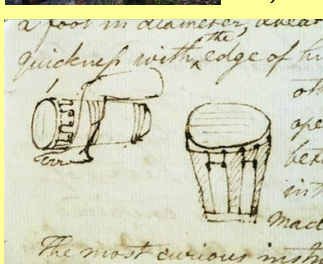 a foot in diameter,
quickness with the edge of
ot
ope
be
in
mad
The most curious inst